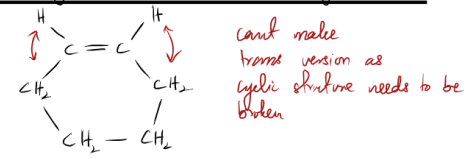 H H
C = C
CH2 CH2
CH2 — CH2
can't make
trans version as
cyclic structure needs to be
broken